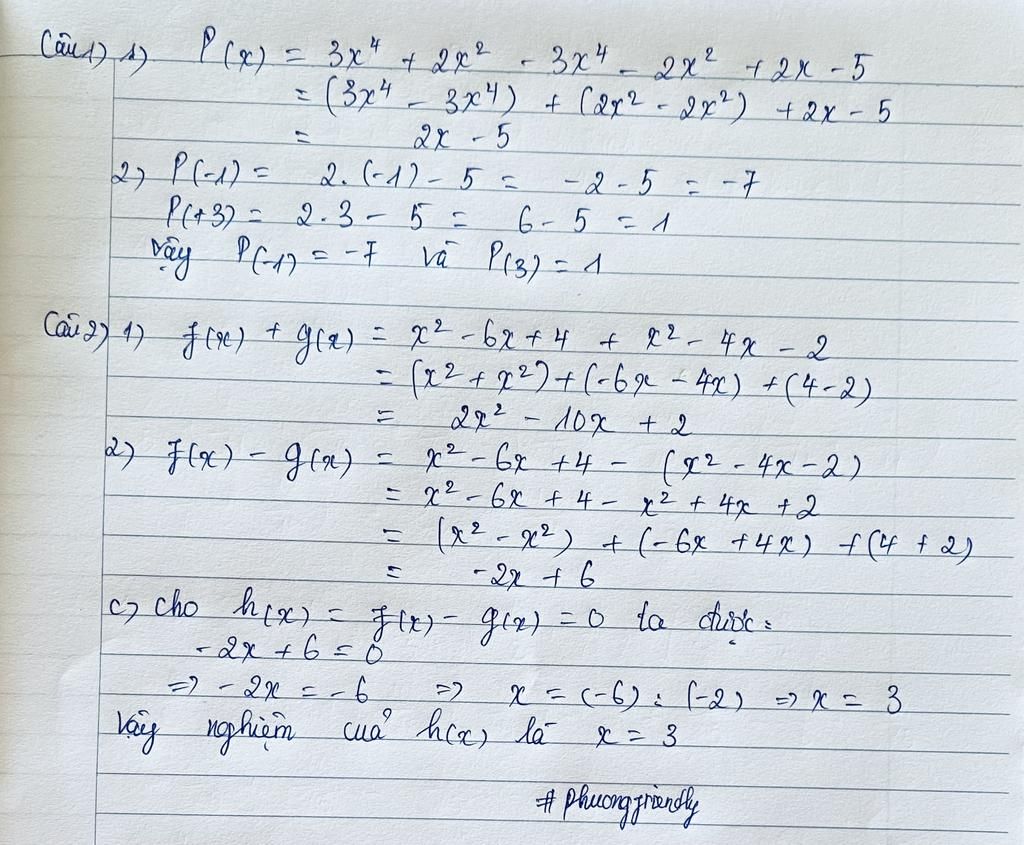 Câu 1) 1) P(x) = 3x⁴ + 2x² - 3x⁴ - 2x² + 2x - 5
= (3x⁴ - 3x⁴) + (2x² - 2x²) + 2x - 5
= 2x - 5
2) P(-1) = 2.(-1) - 5 = -2 - 5 = -7
P(+3) = 2.3 - 5 = 6 - 5 = 1
Vậy P(-1) = -7 và P(3) = 1
Câu 2) 1) f(x) + g(x) = x² - 6x + 4 + x² - 4x - 2
= (x² + x²) + (-6x - 4x) + (4 - 2)
= 2x² - 10x + 2
2) f(x) - g(x) = x² - 6x + 4 - (x² - 4x - 2)
= x² - 6x + 4 - x² + 4x + 2
= (x² - x²) + (-6x + 4x) + (4 + 2)
= -2x + 6
c) cho h(x) = f(x) - g(x) = 0 ta được:
-2x + 6 = 0
=> -2x = -6 => x = (-6) : (-2) => x = 3
Vậy nghiệm của h(x) là x = 3
# phuongfriendly